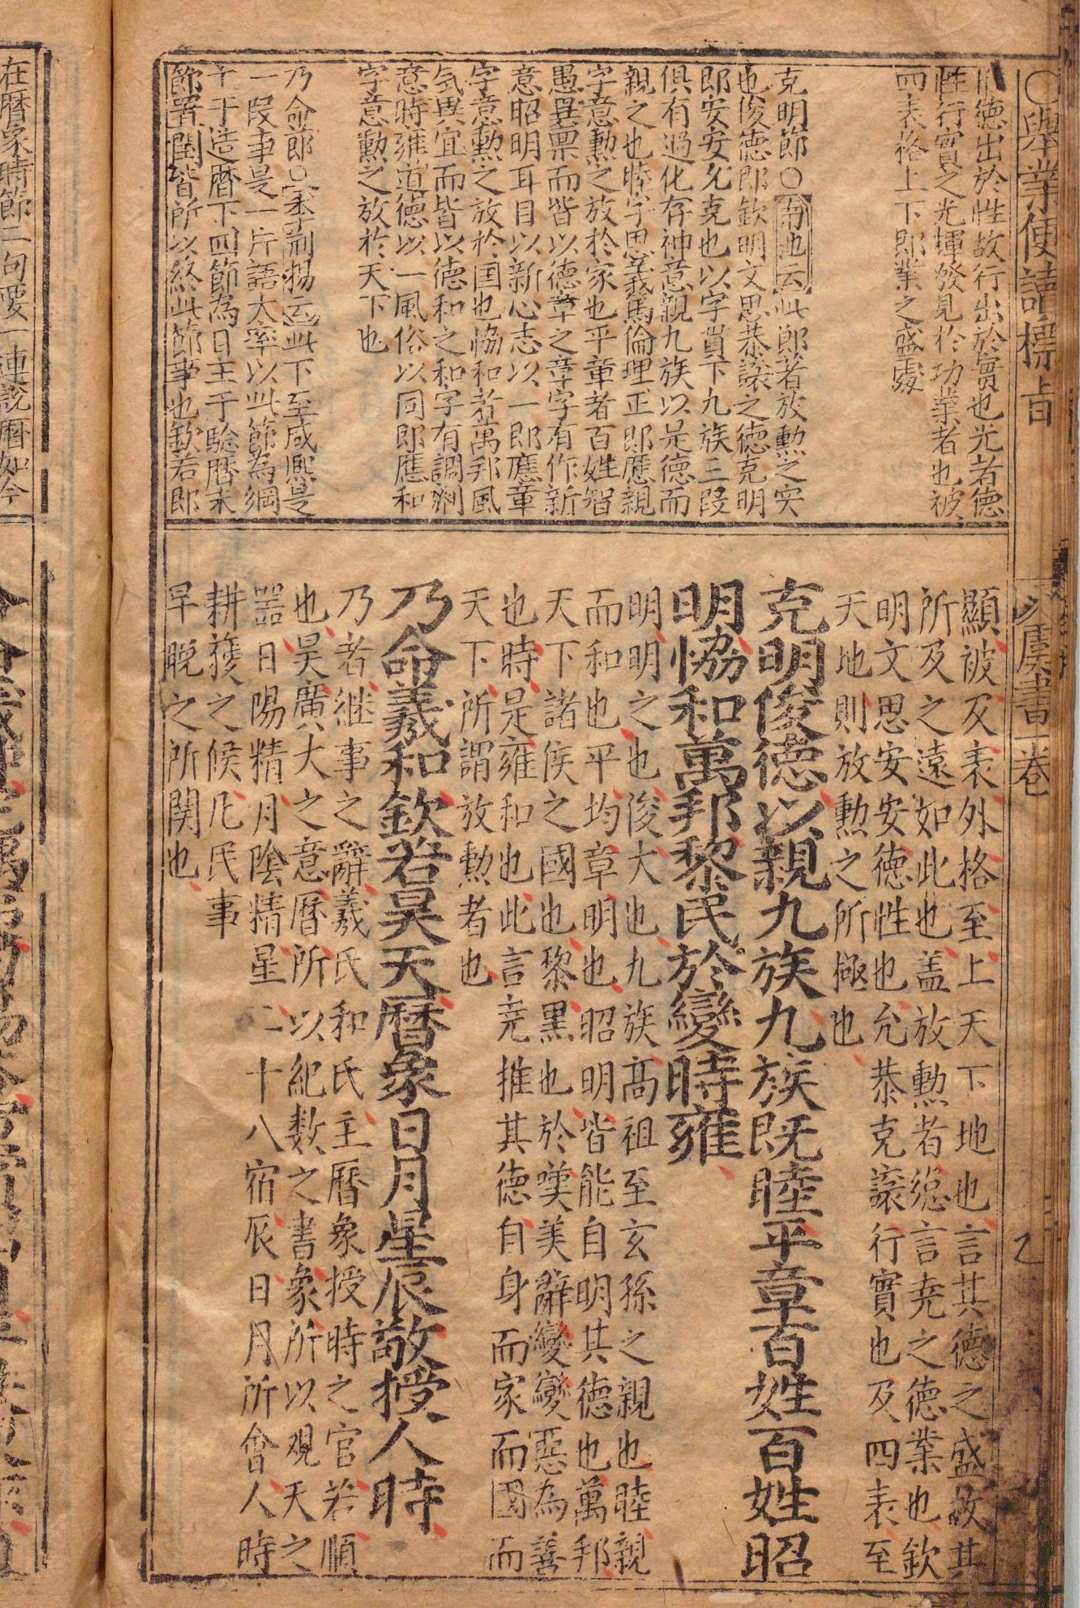 ○舉業便讀標旨
虞書 卷
乙
德出於性故行出於實也光者德
性行實之光揮發見於功業者也被
四表格上下即業之盛處
克明節○南池云此節者放勲之實
也俊德即欽明文思恭讓之德克明
即安安允克也以字貫下九族三段
俱有過化存神意親九族以是德而
親之也睦字思義篤倫理正即應親
字意勲之放於家也平章者百姓智
愚異稟而皆以德章之章字有作新
意昭明耳目以新心志以一即應章
字意勲之放於国也恊和者萬邦風
氣異宜而皆以德和之和字有調劑
意時雍道德以一風俗以同即應和
字意勲之放於天下也
乃命節○宋荆物云此下至咸熙是
一段事是一片語大率以此節為綱
主于造曆下四節為日主于驗曆末
節置閏皆所以終此節事也欽若即
顯被及表外格至上天下地也言其德之盛故其
所及之遠如此也盖放勲者總言尭之德業也欽
明文思安安德性也允恭克讓行實也及四表至
天地則放勲之所極也
克明俊德以親九族九族既睦平章百姓百姓昭
明恊和萬邦黎民於變時雍
明明之也俊大也九族髙祖至玄孫之親也睦親
而和也平均章明也昭明皆能自明其德也萬邦
天下諸侯之國也黎黒也於嘆美辭變變惡為善
也時是雍和也此言尭推其德自身而家而國而
天下所謂放勲者也
乃命羲和欽若昊天曆象日月星辰敬授人時
乃者継事之辭羲氏和氏主曆象授時之官若順
也昊廣大之意曆所以紀数之書象所以观天之
噐日陽精月陰精星二十八宿辰日月所會人時
耕穫之候凡民事
早晚之所関也
在曆象時節二句要一連說曆如今